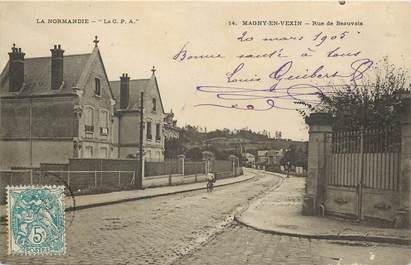 LA NORMANDIE - "La C. P. A."
14. MAGNY-EN-VEXIN - Rue de Beauvais
20 mars 1905
Bonne santé à tous
Louis Guibert
5c
POSTES